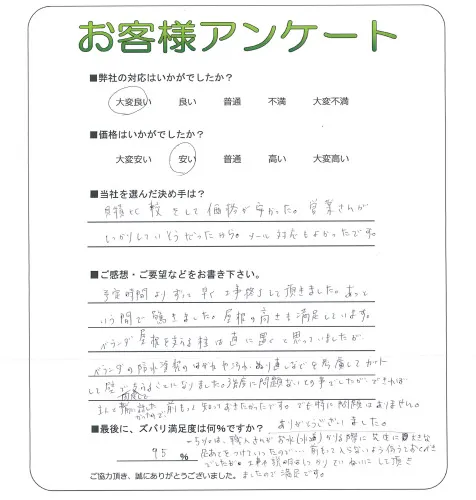 お客様アンケート
■弊社の対応はいかがでしたか？
大変良い 良い 普通 不満 大変不満
■価格はいかがでしたか？
大変安い 安い 普通 高い 大変高い
■当社を選んだ決め手は？
見積比較をして価格が安かった。営業さんが
しっかりしていそうだったから。メール対応もよかったです。
■ご感想・ご要望などをお書き下さい。
予定時間よりずっと早く工事終了して頂きました。あっと
いう間で驚きました。屋根の高さも満足しています。
ベランダ屋根を支える柱は直に置くと思っていましたが
ベランダの防水塗装のはがれや汚れ、ぬり直しなどを考慮してカット
して壁で支えることになりました。強度に問題ないとの事でしたが、できれば
前もって知っておきたかったです。でも特に問題はありません。
■最後に、ズバリ満足度は何%ですか？
ありがとうございました。
95 %
職人さんがお水(水道)かりる際に
工事の説明はしっかりていねいにして頂き
ましたので満足です。
ご協力頂き、誠にありがとうございました。